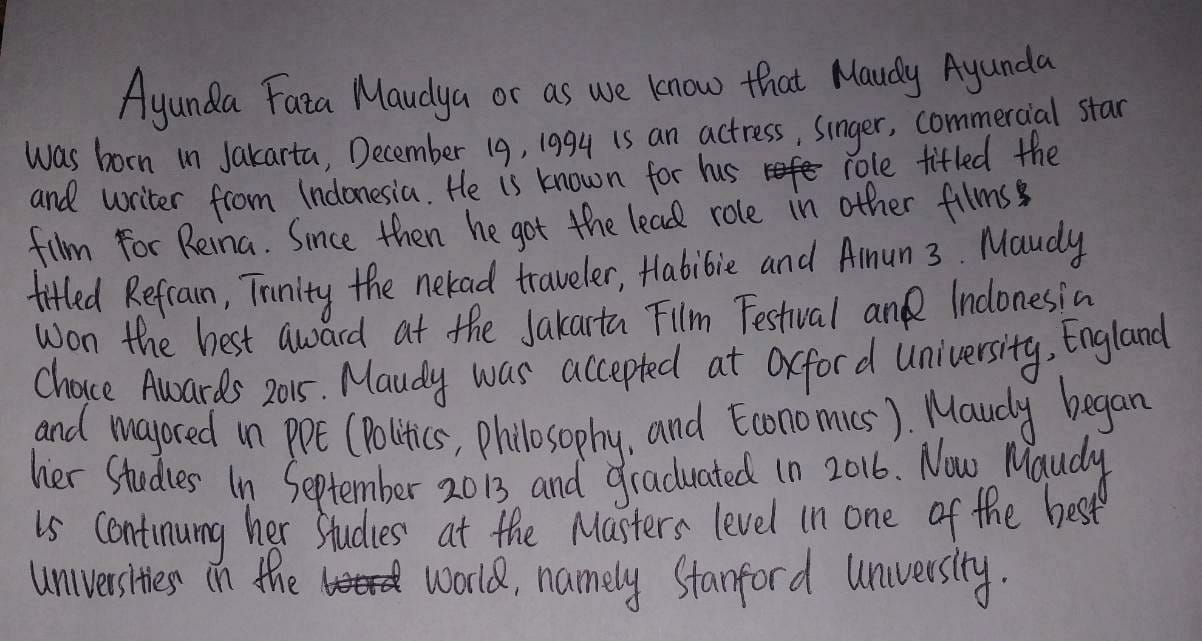 Ayunda Faza Maudya or as we know that Maudy Ayunda
was born in Jakarta, December 19, 1994 is an actress, singer, commercial star
and writer from Indonesia. He is known for his rofe role titled the
film For Reina. Since then he got the lead role in other films
titled Refrain, Trinity the nekad traveler, Habibie and Ainun 3. Maudy
Won the best award at the Jakarta Film Festival and Indonesia
Choice Awards 2015. Maudy was accepted at Oxford University, England
and majored in PPE (Politics, Philosophy, and Economics). Maudy began
her Studies In September 2013 and graduated in 2016. Now Maudy
is Continuing her studies at the Masters level in one of the best
Universities in the world, namely Stanford University.